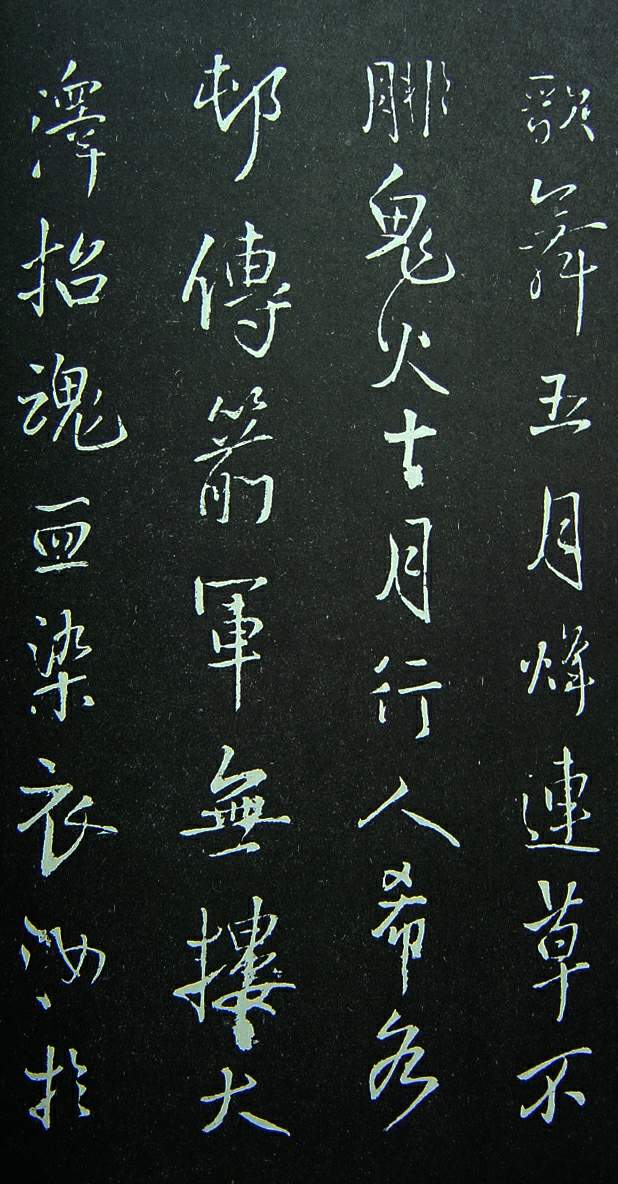 歌舞五月烽連草不
腓鬼火月行人希各
邨傳箭軍無摟大
澤招魂血染衣汝於